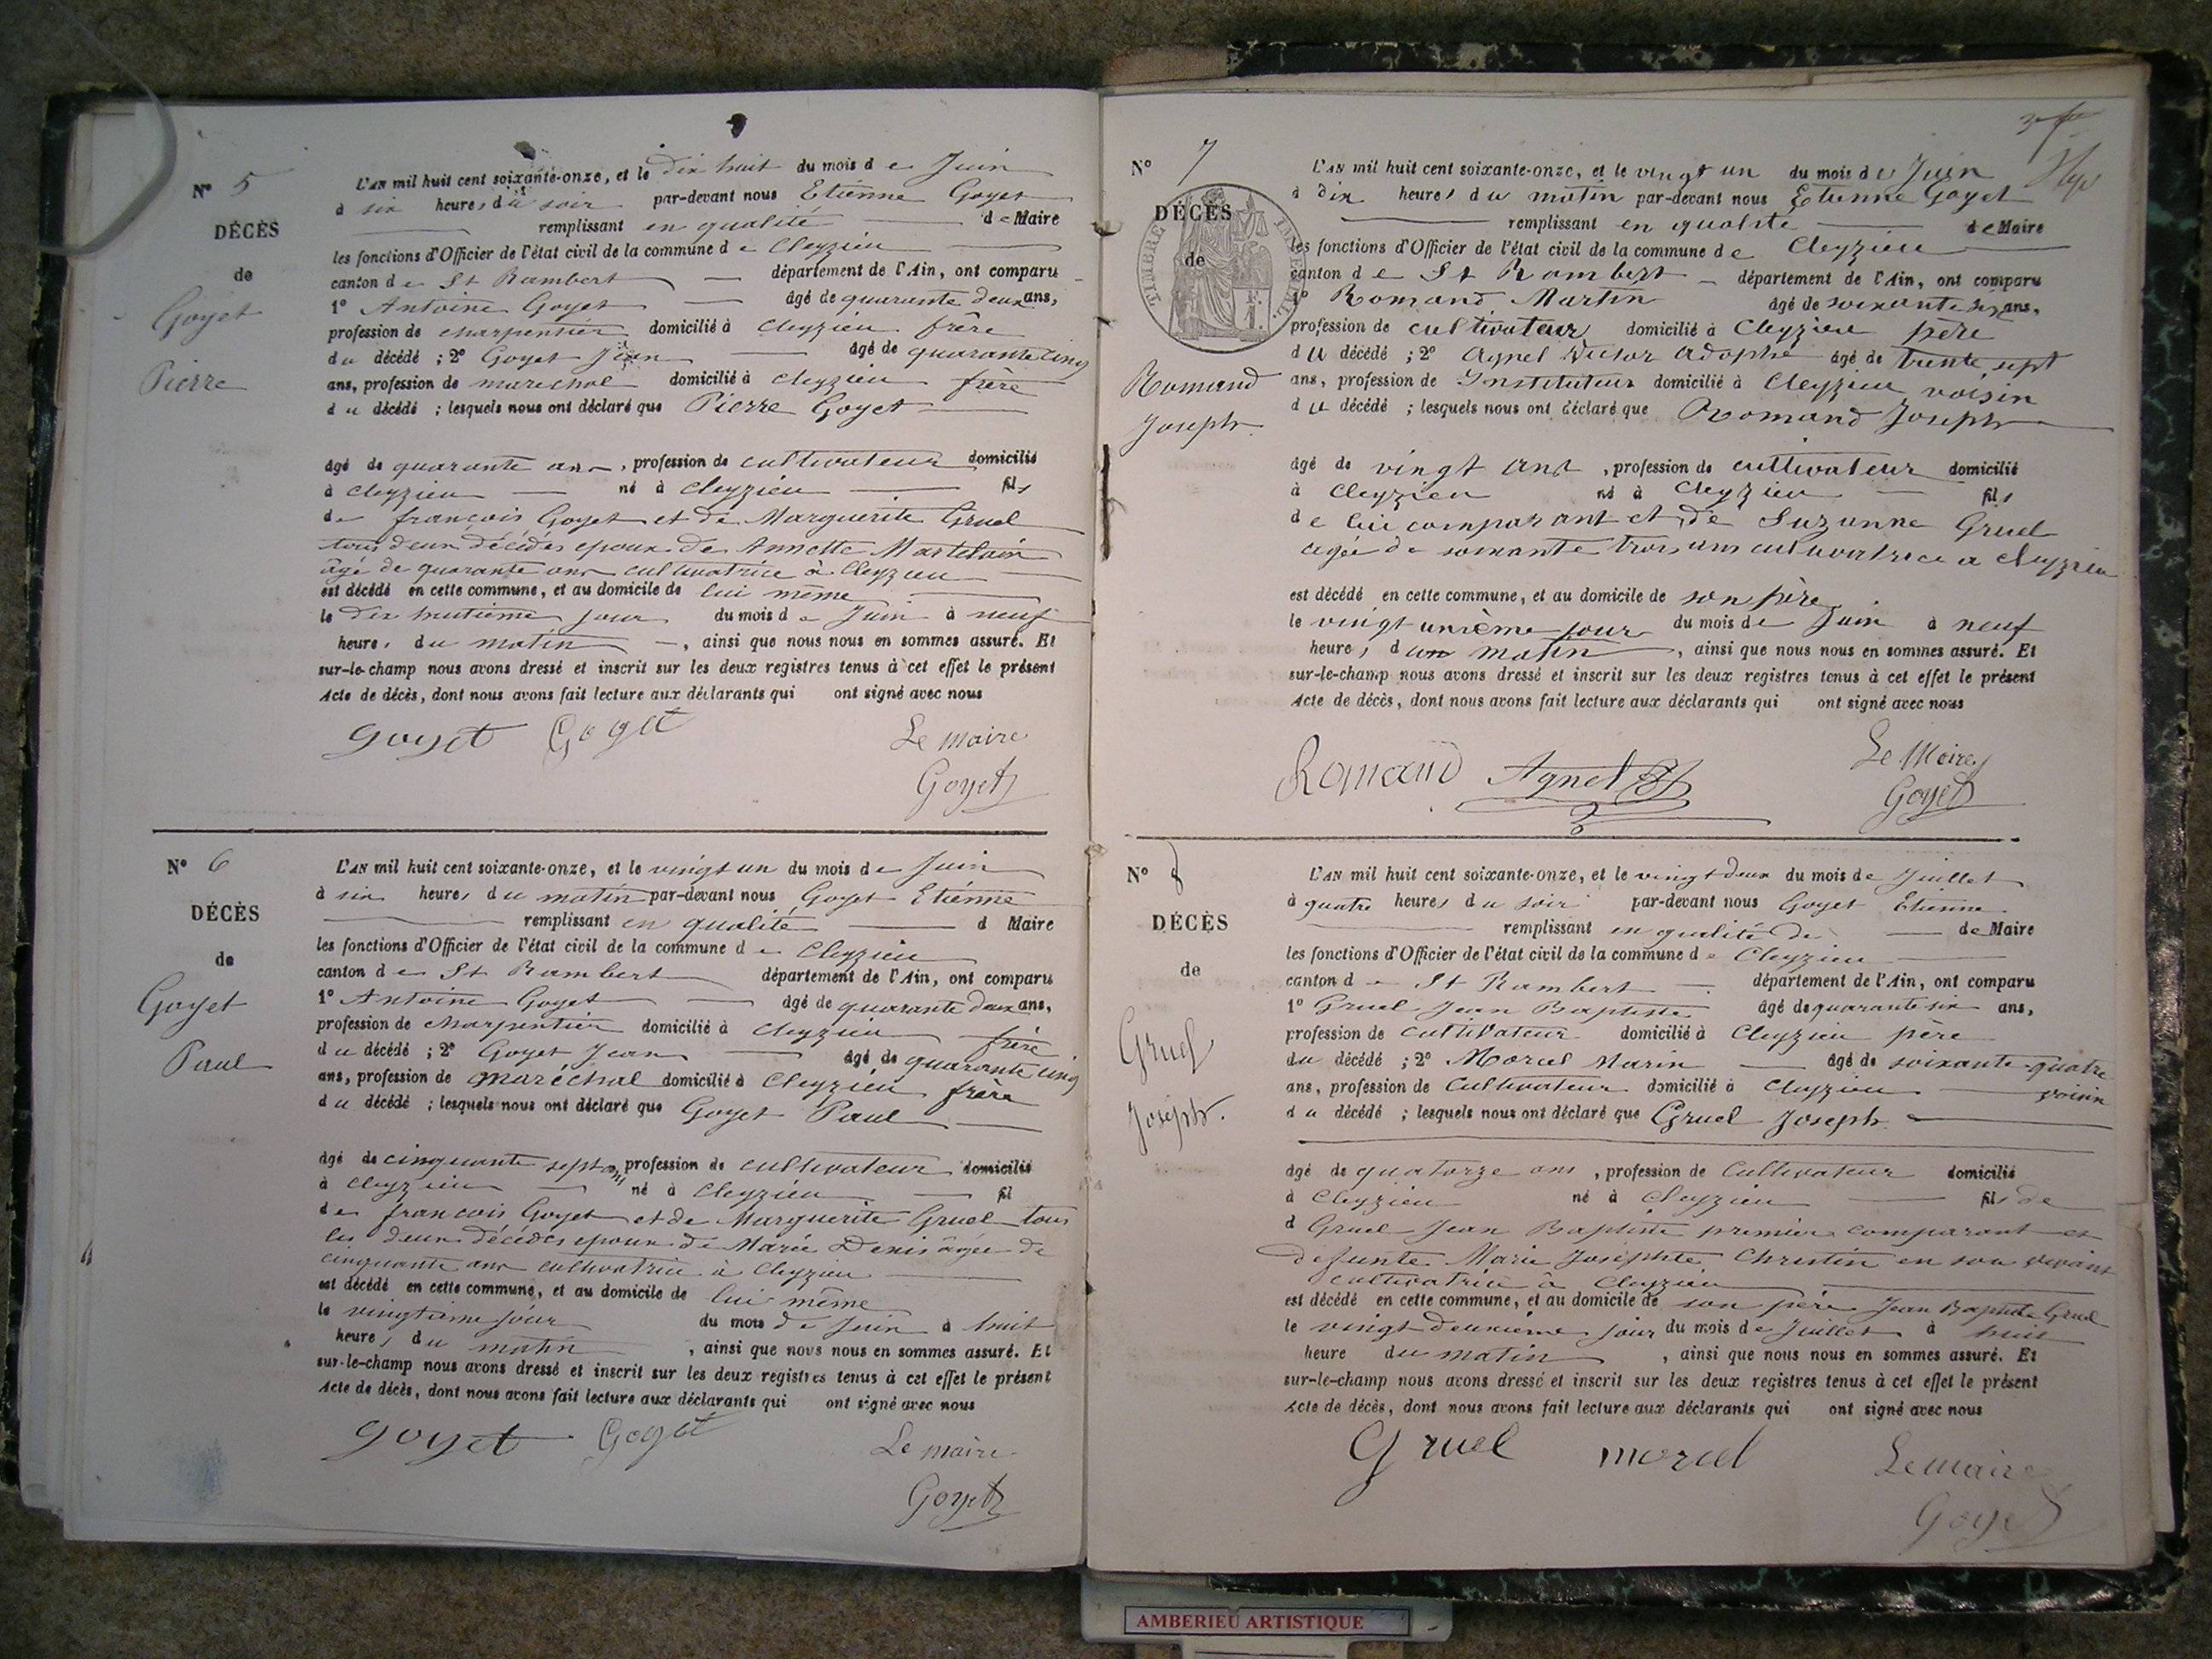 N° 5
DÉCÈS
de
Goyet
Pierre
L'AN mil huit cent soixante-onze, et le dix huit du mois de Juin
à six heures du soir par-devant nous Etienne Goyet
remplissant en qualité de Maire
les fonctions d'Officier de l'état civil de la commune de Cleyzieu
canton de St Rambert département de l'Ain, ont comparu
1° Antoine Goyet âgé de quarante deux ans,
profession de charpentier domicilié à Cleyzieu frère
du décédé ; 2° Goyet Jean âgé de quarante cinq
ans, profession de marechal domicilié à Cleyzieu frère
du décédé ; lesquels nous ont déclaré que Pierre Goyet
âgé de quarante ans, profession de cultivateur domicilié
à Cleyzieu né à Cleyzieu fils
de francois Goyet et de Marguerite Gruel
tous deux décédés epoux de Annette Martelain
âgé de quarante ans cultivatrice à Cleyzieu
est décédé en cette commune, et au domicile de lui même
le dix huitième jour du mois de Juin à neuf
heures du matin, ainsi que nous nous en sommes assuré. Et
sur-le-champ nous avons dressé et inscrit sur les deux registres tenus à cet effet le présent
Acte de décès, dont nous avons fait lecture aux déclarants qui ont signé avec nous
Goyet Goyet Le maire
Goyet
N° 6
DÉCÈS
de
Goyet
Paul
L'AN mil huit cent soixante-onze, et le vingt un du mois de Juin
à six heures du matin par-devant nous Goyet Etienne
remplissant en qualité d Maire
les fonctions d'Officier de l'état civil de la commune de Cleyzieu
canton de St Rambert département de l'Ain, ont comparu
1° Antoine Goyet âgé de quarante deux ans,
profession de charpentier domicilié à Cleyzieu frère
du décédé ; 2° Goyet Jean âgé de quarante cinq
ans, profession de maréchal domicilié à Cleyzieu frère
du décédé ; lesquels nous ont déclaré que Goyet Paul
âgé de cinquante sept ans, profession de cultivateur domicilié
à Cleyzieu né à Cleyzieu fil
de francois Goyet et de Marguerite Gruel tous
les deux décédés epoux de Marie Denis âgée de
cinquante ans cultivatrice à Cleyzieu
est décédé en cette commune, et au domicile de lui même
le vingtième jour du mois de Juin à huit
heures du matin, ainsi que nous nous en sommes assuré. Et
sur-le-champ nous avons dressé et inscrit sur les deux registres tenus à cet effet le présent
Acte de décès, dont nous avons fait lecture aux déclarants qui ont signé avec nous
Goyet Goyet Le maire
Goyet
N° 7
DÉCÈS
de
TIMBRE IMPÉRIAL
Romand
Joseph
L'AN mil huit cent soixante-onze, et le vingt un du mois de Juin
à dix heures du matin par-devant nous Etienne Goyet
remplissant en qualité de Maire
les fonctions d'Officier de l'état civil de la commune de Cleyzieu
canton de St Rambert département de l'Ain, ont comparu
1° Romand Martin âgé de soixante ans,
profession de cultivateur domicilié à Cleyzieu père
du décédé ; 2° Agnel Victor Adophe âgé de trente sept
ans, profession de Instituteur domicilié à Cleyzieu voisin
du décédé ; lesquels nous ont déclaré que Romand Joseph
âgé de vingt ans, profession de cultivateur domicilié
à Cleyzieu né à Cleyzieu fils
de lui comparant et de Suzanne Gruel
agée de soixante trois ans cultivatrice a Cleyzieu
est décédé en cette commune, et au domicile de son père
le vingt unième jour du mois de Juin à neuf
heures du matin, ainsi que nous nous en sommes assuré. Et
sur-le-champ nous avons dressé et inscrit sur les deux registres tenus à cet effet le présent
Acte de décès, dont nous avons fait lecture aux déclarants qui ont signé avec nous
Romand Agnel Le Maire
Goyet
N° 8
DÉCÈS
de
Gruel
Joseph.
L'AN mil huit cent soixante-onze, et le vingt deux du mois de Juillet
à quatre heures du soir par-devant nous Goyet Etienne
remplissant en qualité de de Maire
les fonctions d'Officier de l'état civil de la commune de Cleyzieu
canton de St Rambert département de l'Ain, ont comparu
1° Gruel Jean Baptiste âgé de quarante six ans,
profession de cultivateur domicilié à Cleyzieu père
du décédé ; 2° Morcel Marin âgé de soixante quatre
ans, profession de Cultivateur domicilié à Cleyzieu voisin
du décédé ; lesquels nous ont déclaré que Gruel Joseph
âgé de quatorze ans, profession de Cultivateur domicilié
à Cleyzieu né à Cleyzieu fils de
d Gruel Jean Baptiste premier comparant et
defunte Marie Josephte Christin en son vivant
cultivatrice à Cleyzieu
est décédé en cette commune, et au domicile de son père Jean Baptiste Gruel
le vingt deuxième jour du mois de Juillet à huit
heure du matin, ainsi que nous nous en sommes assuré. Et
sur-le-champ nous avons dressé et inscrit sur les deux registres tenus à cet effet le présent
Acte de décès, dont nous avons fait lecture aux déclarants qui ont signé avec nous
Gruel morcel Le maire
Goyet
AMBERIEU ARTISTIQUE